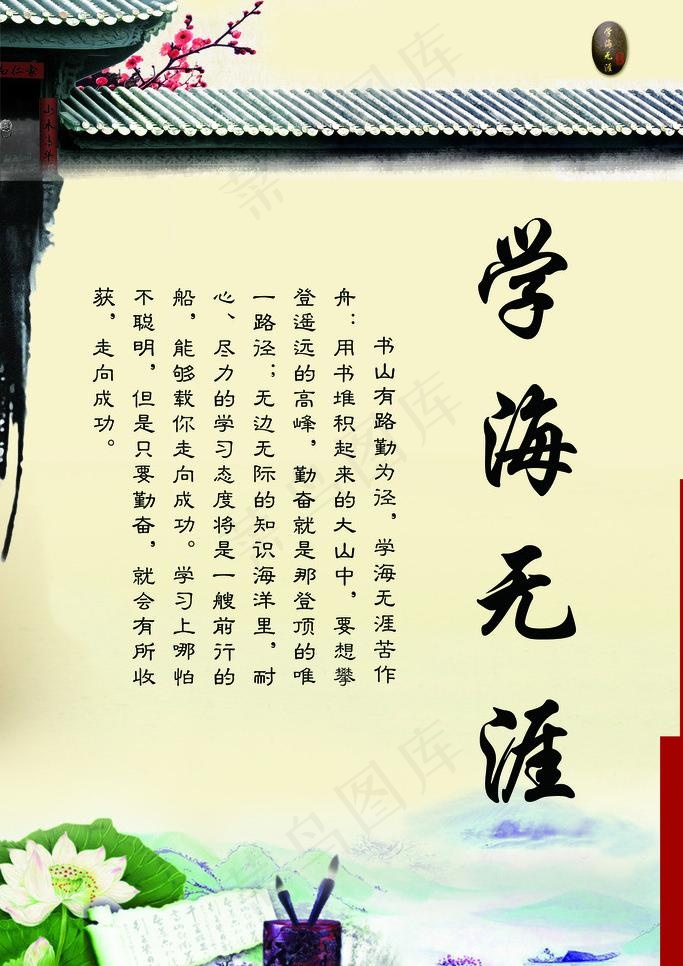 学海无涯
学海无涯
书山有路勤为径，学海无涯苦作
舟：用书堆积起来的大山中，要想攀
登遥远的高峰，勤奋就是那登顶的唯
一路径；无边无际的知识海洋里，耐
心、尽力的学习态度将是一艘前行的
船，能够载你走向成功。学习上哪怕
不聪明，但是只要勤奋，就会有所收
获，走向成功。